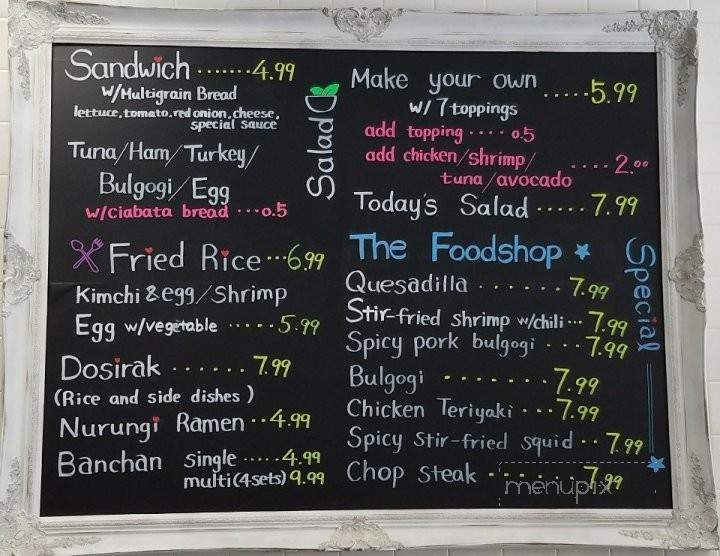 Sandwich ....... 4.99
w/Multigrain Bread
lettuce, tomato, red onion, cheese,
special sauce
Tuna/Ham/Turkey/
Bulgogi/Egg
w/ciabata bread ... 0.5
Fried Rice ... 6.99
Kimchi & egg/Shrimp
Egg w/vegetable ..... 5.99
Dosirak ...... 7.99
(Rice and side dishes)
Nurungi Ramen .. 4.99
Banchan single ..... 4.99
multi(4sets) 9.99
Salad
Make your own ..... 5.99
w/ 7 toppings
add topping .... 0.5
add chicken/shrimp/ .... 2.00
tuna/avocado
Today's Salad ..... 7.99
The Foodshop
Special
Quesadilla ....... 7.99
Stir-fried shrimp w/chili ... 7.99
Spicy pork bulgogi ... 7.99
Bulgogi ....... 7.99
Chicken Teriyaki ... 7.99
Spicy stir-fried squid .. 7.99
Chop steak ....... 7.99
menupix